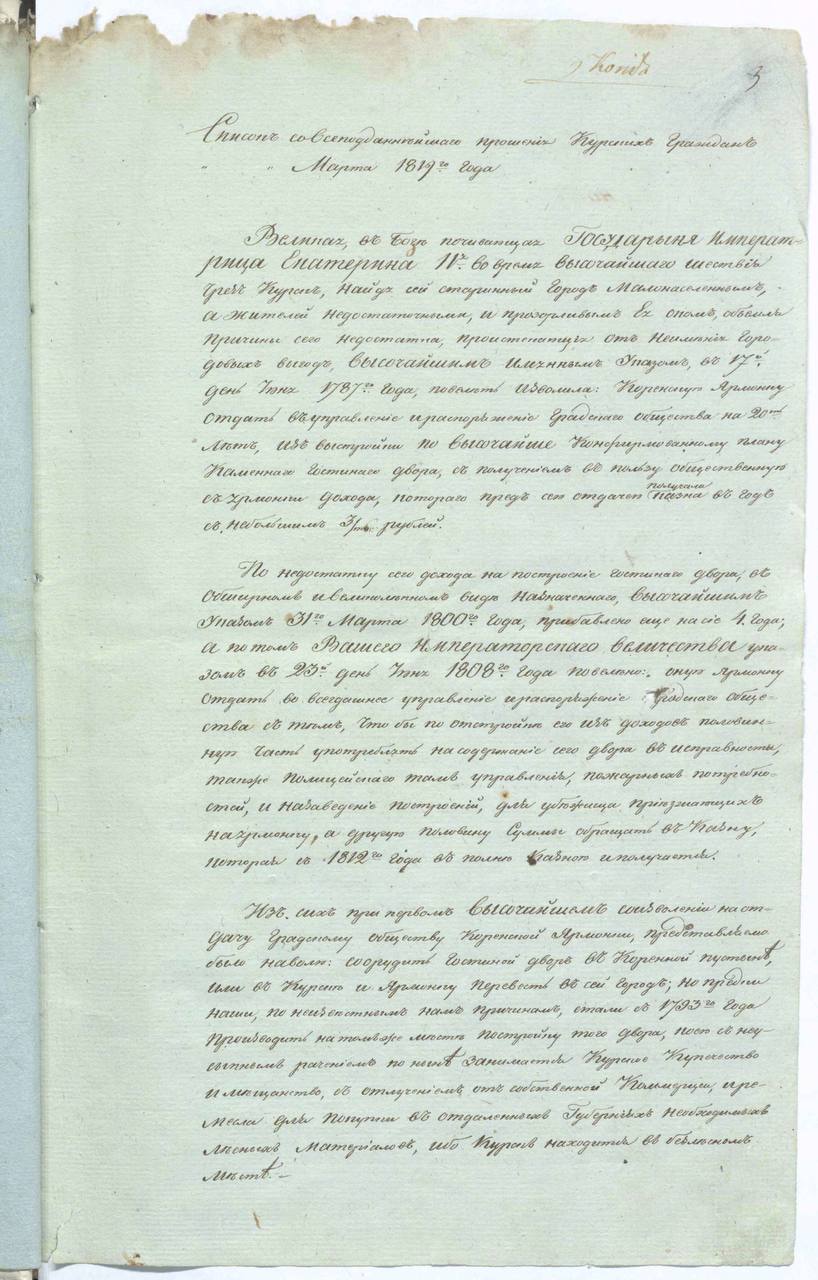 Копія
3
Списокъ со Всеподданнѣйшаго прошенія Курскихъ Гражданъ
" " Марта 1819го года
Великая, въ Бозѣ почивающая ГОСУДАРЫНЯ Императ-
рица Екатерина IIя. во время высочайшаго шествія
чрезъ Курскъ, найдя сей старинный Городъ Малонаселеннымъ,
а жителей недостаточными, и прозорливымъ Ея окомъ, объемля
причины сего недостатка, проистекающія отъ неимѣнія Горо-
довыхъ выгодъ, высочайшимъ имяннымъ Указомъ, въ 17й.
день Іюня 1787го года, повелѣть изволила: Коренную Ярмонку
отдать въ управленіе и распоряженіе Градскаго общества на 20ть
лѣтъ, изъ выстройки по высочайше Конфирмованному плану
Каменнаго Гостинаго двора, съ полученіемъ въ пользу общественную
съ ярмонки дохода, котораго предъ сею отдачею получала казна въ годъ
съ небольшимъ 3/т рублей.
По недостатку сего дохода на построеніе гостинаго двора, въ
обширномъ и великолѣпномъ видѣ назначеннаго, высочайшимъ
Указомъ 31го Марта 1800го года, прибавлено еще на сіе 4. года;
а по томъ Вашего Императорскаго величества ука-
зомъ въ 23й день Іюня 1808го года повелѣно: оную Ярмонку
отдать во всегдашнее управленіе и распоряженіе Градскаго обще-
ства съ тѣмъ, что бы по отстройкѣ его изъ доходовъ половин-
ную часть употреблять на содержаніе сего двора въ исправности,
также полицейскаго тамъ управленія, пожарныхъ потребно-
стей, и на заведеніе построеній, для убѣжища пріѣзжающихъ
на ярмонку, а другую половину Суммы обращать въ Казну,
которая съ 1812го года въ полнѣ Казною и получается.
Изъ сихъ при первомъ высочайшемъ соизволеніи на от-
дачу Градскому обществу Коренской Ярмонки, представляемо
было на волю: соорудить Гостиной дворъ въ Коренной пустынѣ,
или въ Курскѣ и Ярмонку перевесть въ сей городъ; но предки
наши, по неизвѣстнымъ намъ причинамъ, стали съ 1793го года
производить на томъ же мѣстѣ постройку того двора, коею съ неу-
сыпнымъ раченіемъ по нынѣ занимается Курское Купечество
и мѣщанство, съ отлученіемъ отъ собственной Коммерціи, и ре-
месла для покупки въ отдаленныхъ Губерніяхъ необходимыхъ
лѣсныхъ матеріаловъ, ибо Курскъ находится въ безлѣсномъ
мѣстѣ.